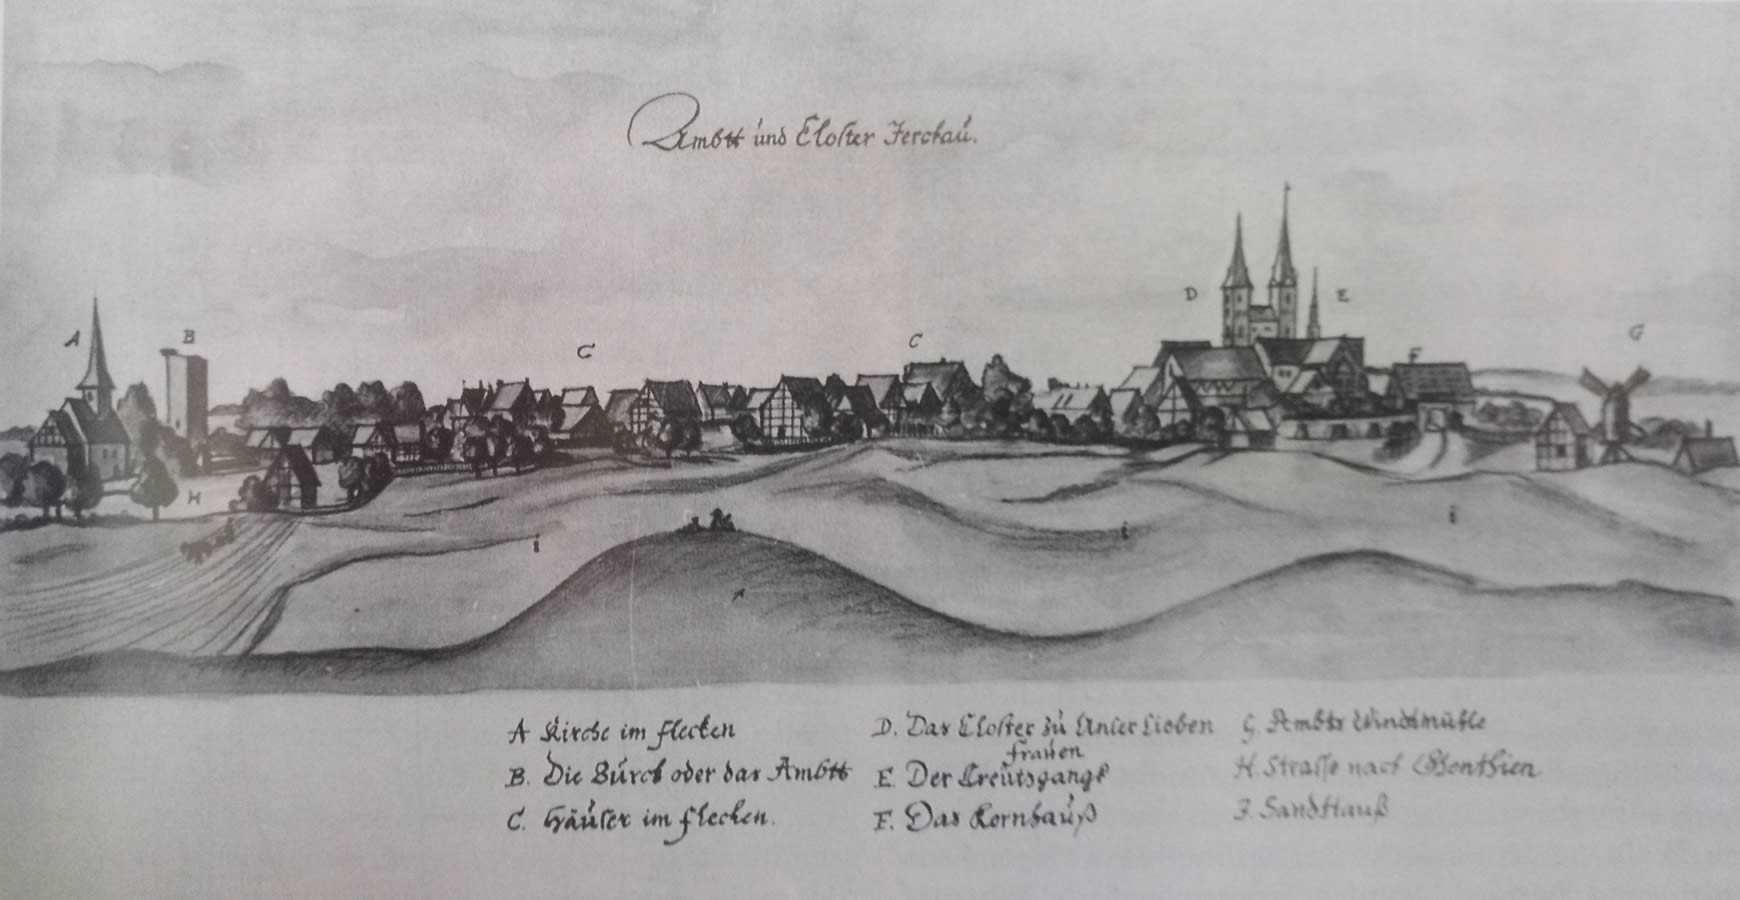 Ambtt und Closter Jerchau.
A B C C D E F G
H i i i
A Kirche im flecken
B. Die Burch oder das Ambtt
C. Häuser im flecken.
D. Das Closter zu Unser Lieben
frauen
E. Der Creutsgangk
F. Das Kornhauß
G Ambts Windtmühle
H. Strasse nach Genthien
J. Sandt